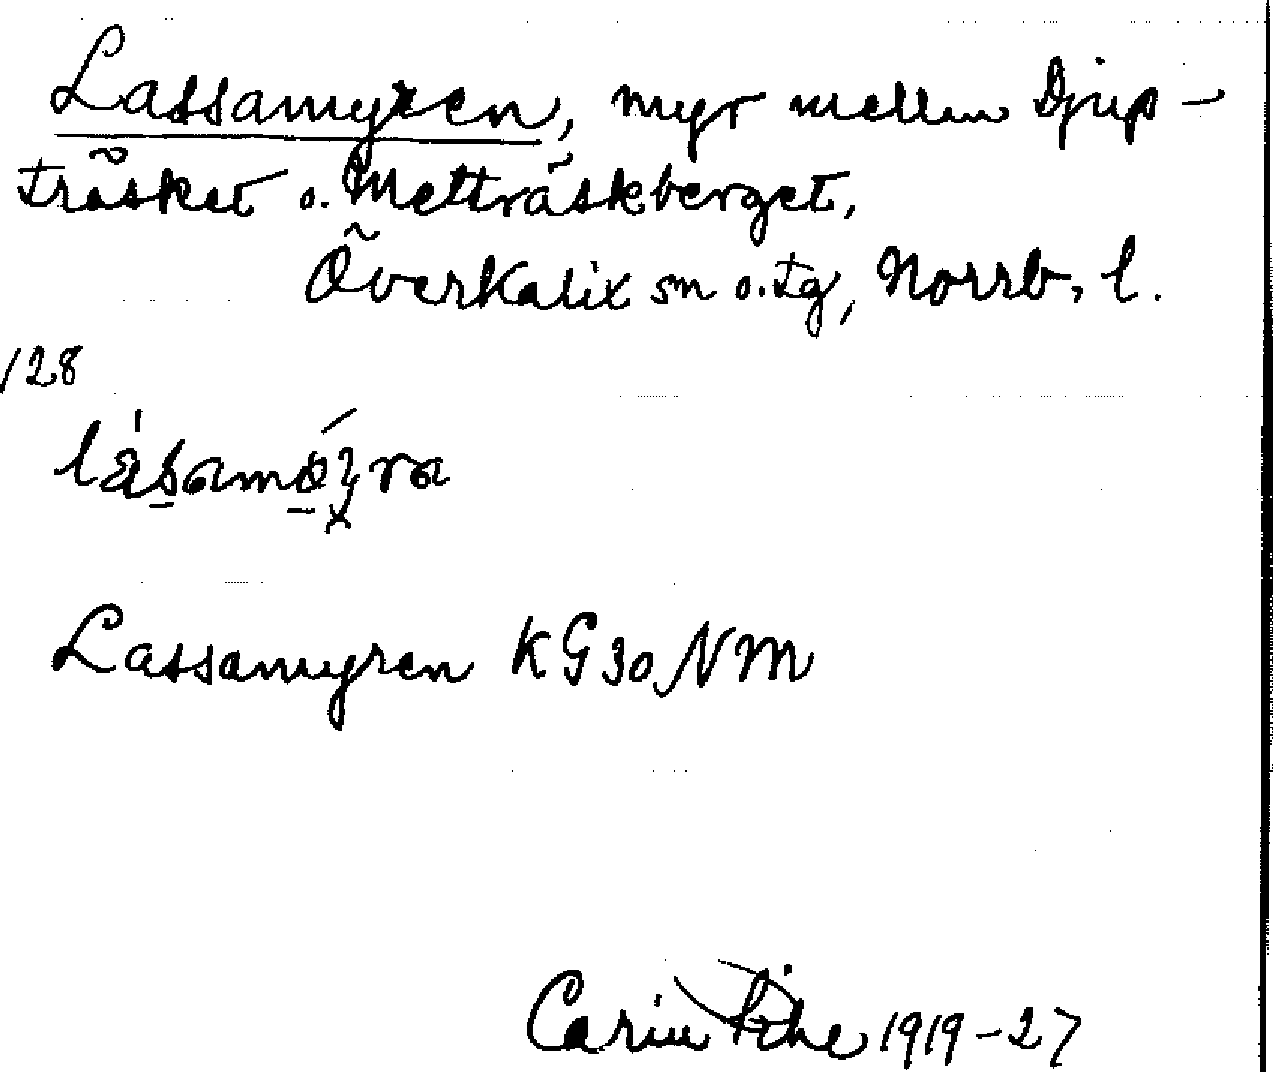 Lassamyren, myr mellan Djup-
träsket o. Metträskberget,
Överkalix sm o. tg, Norrb. l.
/28
Lassamyren KG 30 NM
Carin Pihl 1919-27